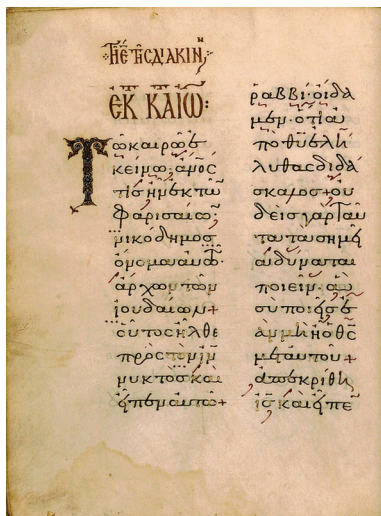 Τῇ ε̄ τῆς διακιν
ἐκ κ Ἰω:
Τῷ καιρῷ ἐ
κείνῳ· ἄνος
τὶς ἦν ἐκ τῶ
φαρισαίω·
νικόδημος
ὄνομα αὐτῶ·
ἄρχων τῶν
ἰουδαίων +
οὗτος ἦλθε
πρὸς τὸν ιν
νυκτὸς καὶ
εἶπεν αὐτῶ +
ραββί· οἴδα
μεν· ὅτι ἀ
πὸ θυ ἐλή
λυθας διδά
σκαλος + οὐ
δεὶς γὰρ ταῦ
τα τὰ σημεῖ
α δύναται
ποιεῖν· ἃ
σὺ ποιεῖς ἐ
ὰν μὴ ἦ ὁ θς
μετ αυτου +
ἀπεκρίθη
ις καὶ εἶπε